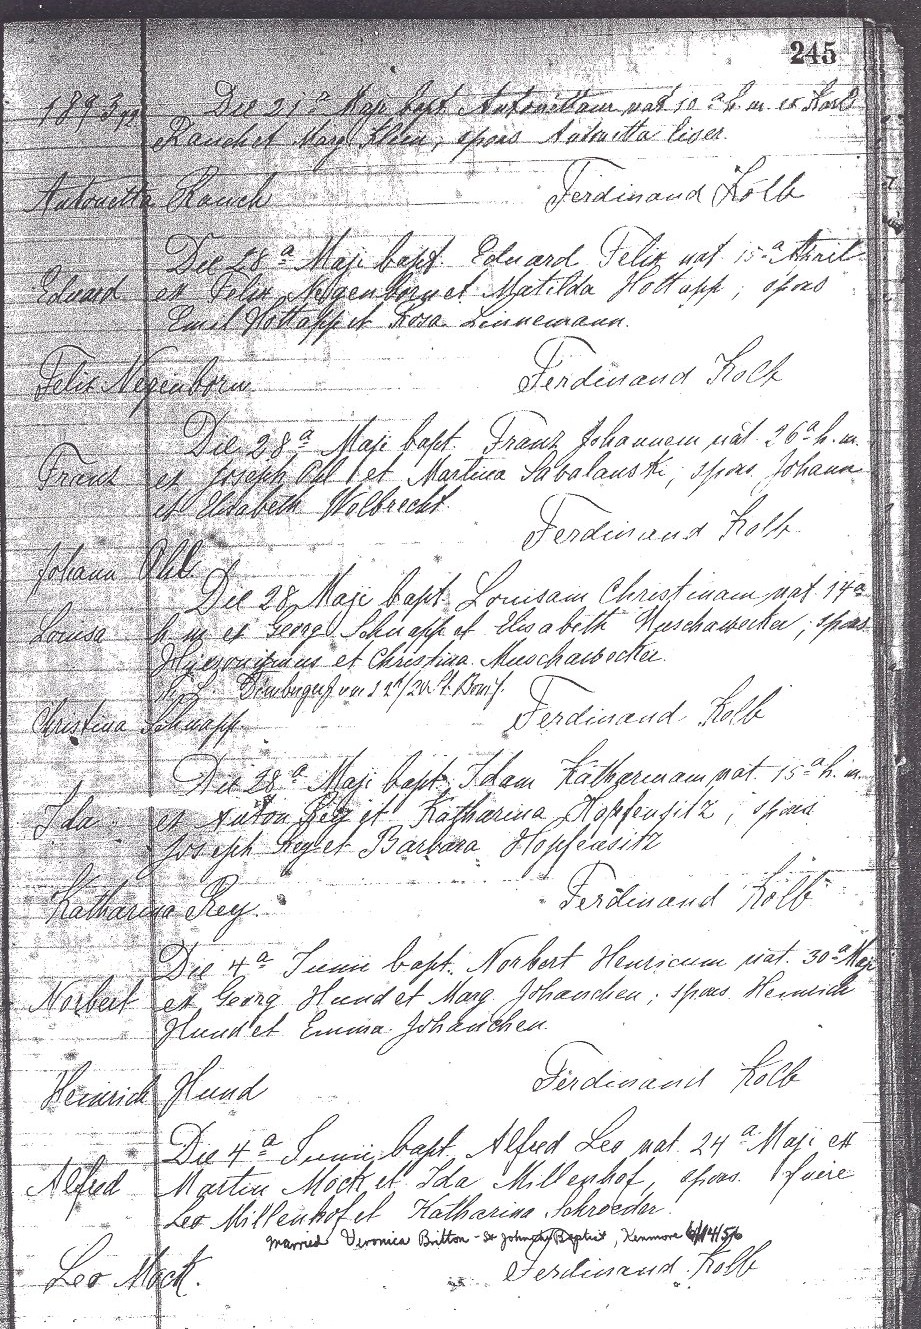 245
1893
Die 21a Maji bapt Antoniettam nat 10a h. m. ex Karl
Rauch et Marg Klein, spons Antonietta Eiser
Antonietta Rauch Ferdinand Kolb
Die 28a Maji bapt. Eduard Felix nat 15a April
Eduard ex Felix Negenborn et Matilda Hottapp; spons
Emil Hottapp et Rosa Linnemann.
Felix Negenborn Ferdinand Kolb
Die 28a Maji bapt. Franz Johannem nat 26a h. m.
Franz ex Joseph Ohl et Martina Sabalanski, spons Johann
et Elisabeth Wolbrecht
Ferdinand Kolb
Johann Ohl
Die 28 Maji bapt Louisam Christinam nat 14a
Louisa h. m ex Georg Schnapp et Elisabeth Muschawecker; spons
Hyeronimus et Christina Muschawecker.
St. Bonif.
Christina Schnapp Ferdinand Kolb
Die 28a Maji bapt. Idam Katharinam nat. 15a h. m.
Ida ex Anton Rey et Katharina Hopfensitz; spons
Joseph Rey et Barbara Hopfensitz
Katharina Rey. Ferdinand Kolb
Die 4a Junii bapt. Norbert Henricum nat. 30a Maji
Norbert ex Georg Hund et Marg Johanchen; spons. Heinrich
Hund et Emma Johanchen.
Heinrich Hund Ferdinand Kolb
Die 4a Junii bapt Alfred Leo nat 24a Maji ex
Alfred Martin Mock et Ida Millenhof, spons. fuere
Leo Millenhof et Katharina Schroeder.
Married Veronica Britton - St John the Baptist, Kenmore 6/14/56
Leo Mock. Ferdinand Kolb